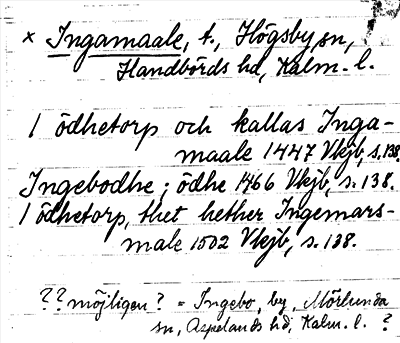 x Ingamaale, t., Högsby sn,
Handbörds hd, Kalm. l.
1 ödhetorp och kallas Inga-
maale 1447 Vkjb, s. 138.
Ingebodhe; ödhe 1466 Vkjb, s. 138.
1 ödhetorp, thet hether Ingemars-
male 1502 Vkjb, s. 138.
?? möjligen? = Ingebo, by, Mörlunda
sn, Aspelands hd, Kalm. l. ?